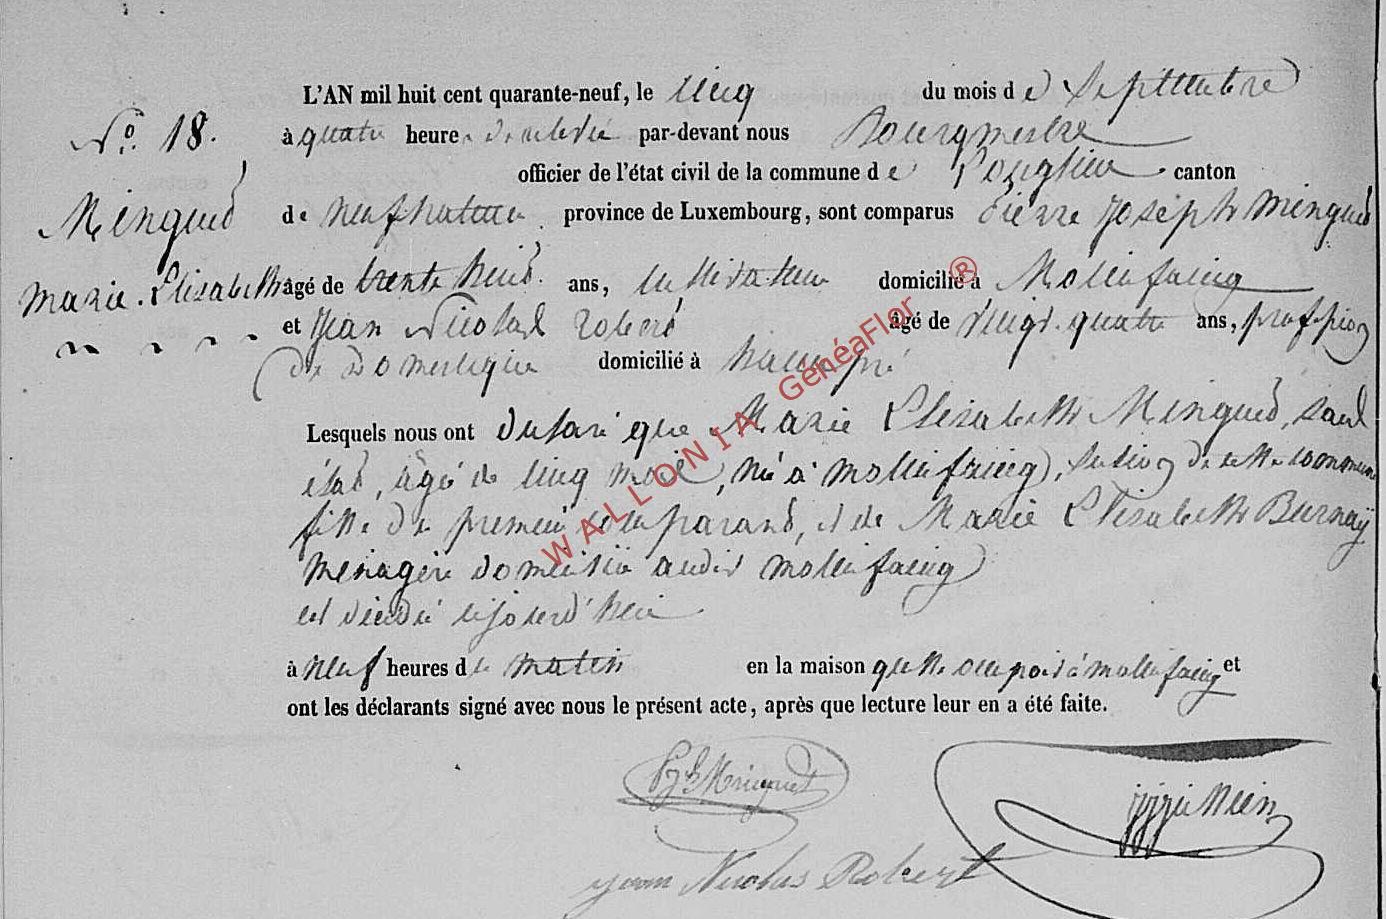 L'AN mil huit cent quarante-neuf, le cinq du mois de Septembre
N.º 18. à quatre heures de relevée par-devant nous Bourgmestre
officier de l'état civil de la commune de Longlier canton
Minguet de neufchateau province de Luxembourg, sont comparus Pierre Joseph Minguet
Marie-Elisabeth âgé de trente huit ans, cultivateur domicilié à Mollinfaing
et Jean Nicolas Robert âgé de vingt-quatre ans, profession
de Domestique domicilié à
Lesquels nous ont déclaré que Marie Elisabeth Minguet, sans
état, âgée de cinq mois, née à mollinfaing, section de cette commune
fille du premier comparant, et de Marie Elisabeth Burnaÿ
ménagère domiciliée audit mollinfaing
est décédée cejourd'hui
à neuf heures du matin en la maison qu'elle occupoit à mollinfaing et
ont les déclarants signé avec nous le présent acte, après que lecture leur en a été faite.
Minguet
Nicolas Robert
WALLONIA GenéaFlor ®